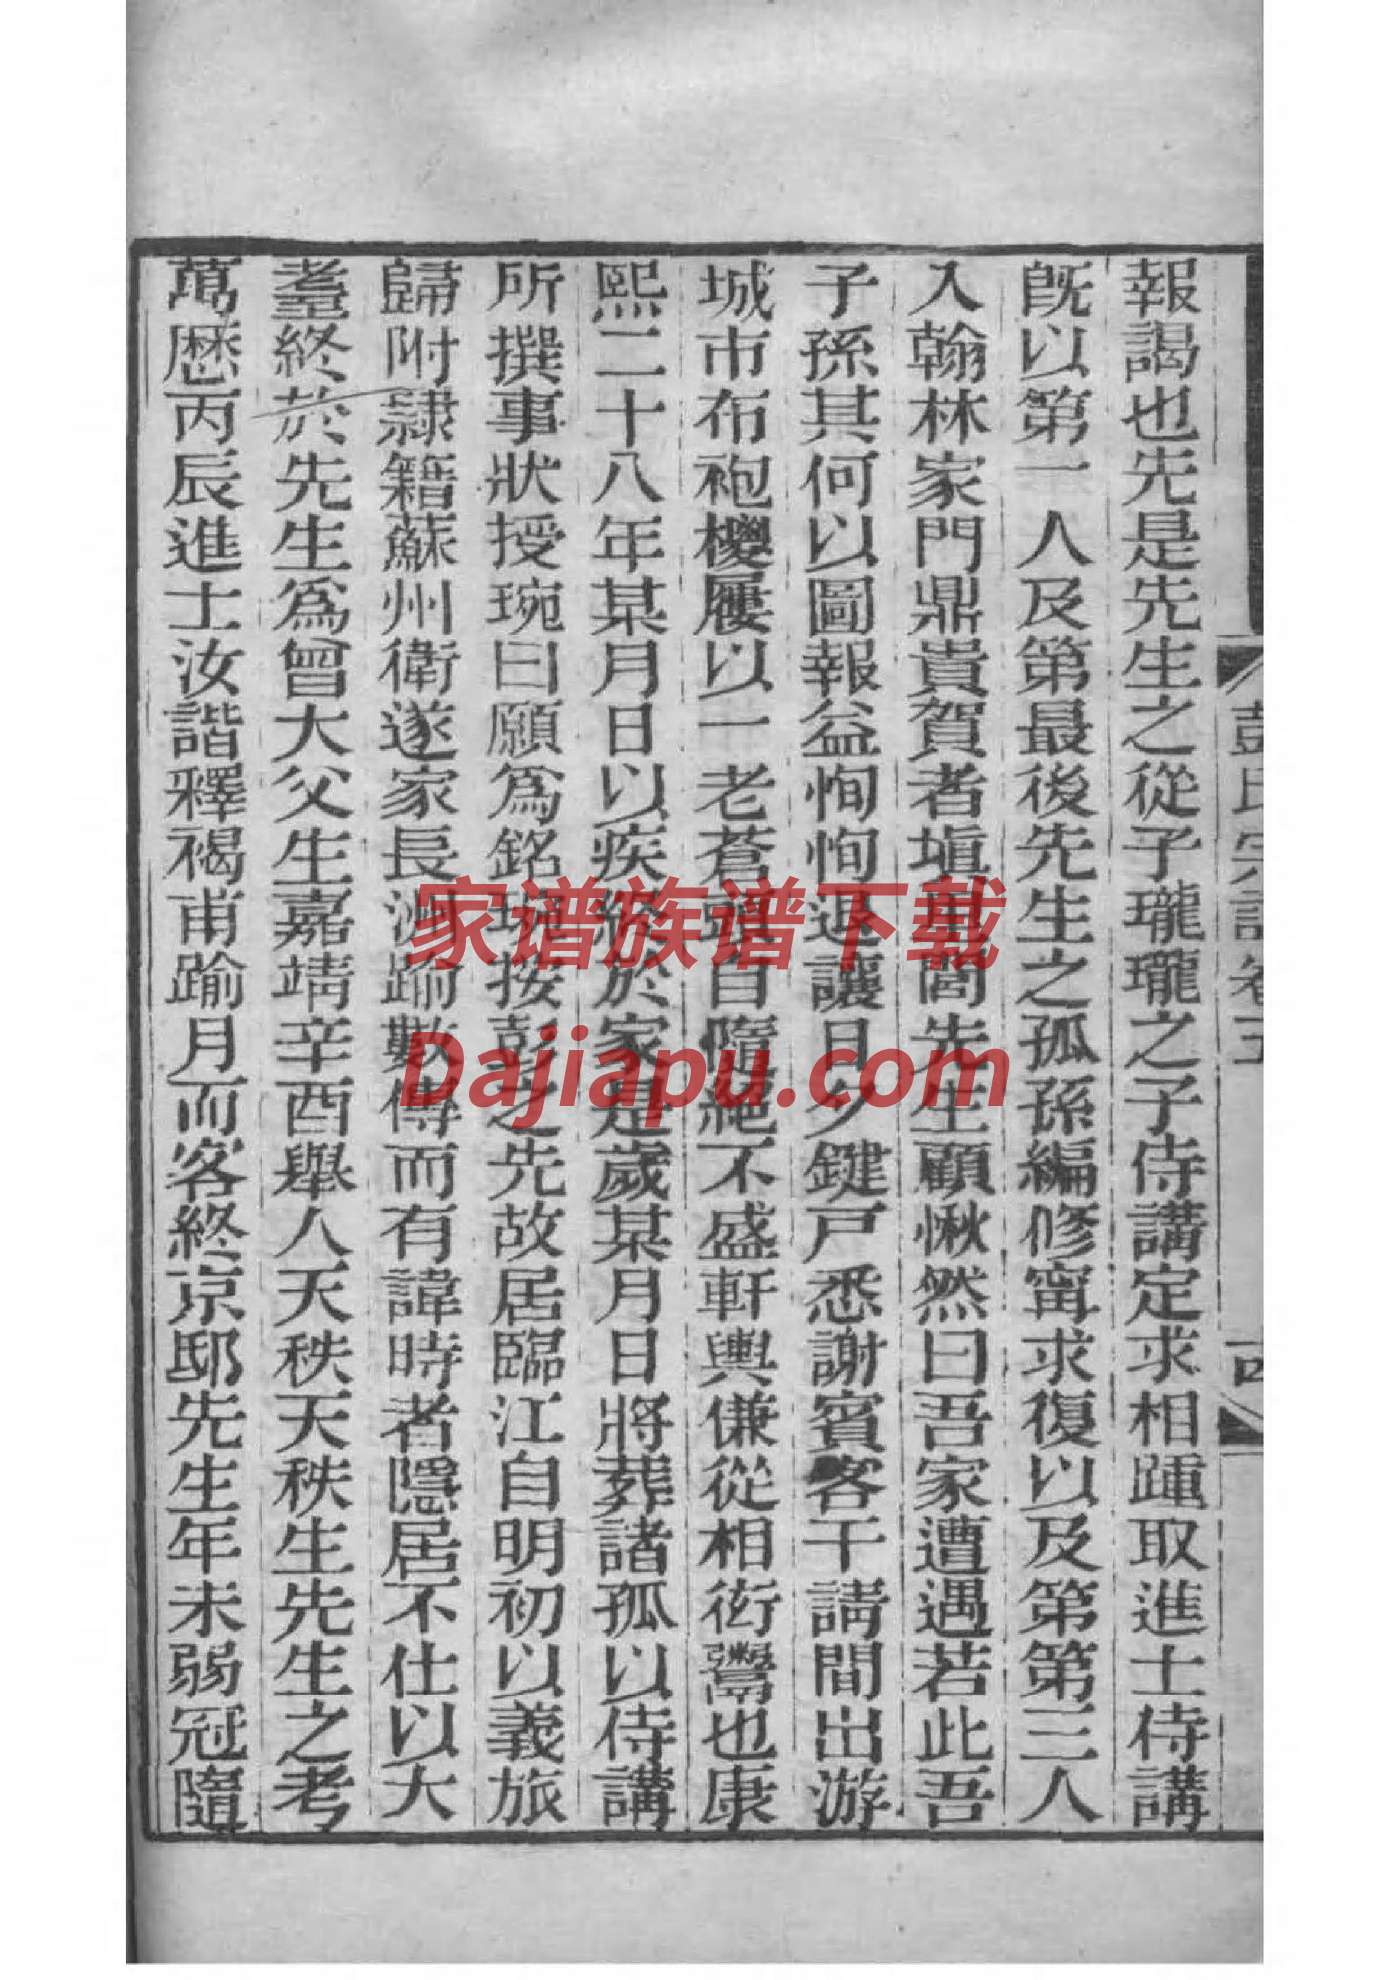 彭氏宗譜卷五
四
報謁也先是先生之從子瓏瓏之子侍講定求相踵取進士侍講
旣以第一人及第最後先生之孤孫編修甯求復以及第第三人
入翰林家門鼎貴賀者塡里閭先生顧愀然曰吾家遭遇若此吾
子孫其何以圖報益恂恂退讓日夕鍵戸悉謝賓客干請間出游
城市布袍㯶屨以一老蒼頭自隨絕不盛軒輿傔從相衒鬻也康
熙二十八年某月日以疾終於家是歲某月日將葬諸孤以侍講
所撰事狀授琬曰願爲銘琬按彭之先故居臨江自明初以義旅
歸附隷籍蘇州衛遂家長洲踰數傳而有諱時者隱居不仕以大
耋終於先生爲曾大父生嘉靖辛酉舉人天秩天秩生先生之考
萬歷丙辰進士汝諧釋褐甫踰月而客終京邸先生年未弱冠隨
家谱族谱下载
Dajiapu.com